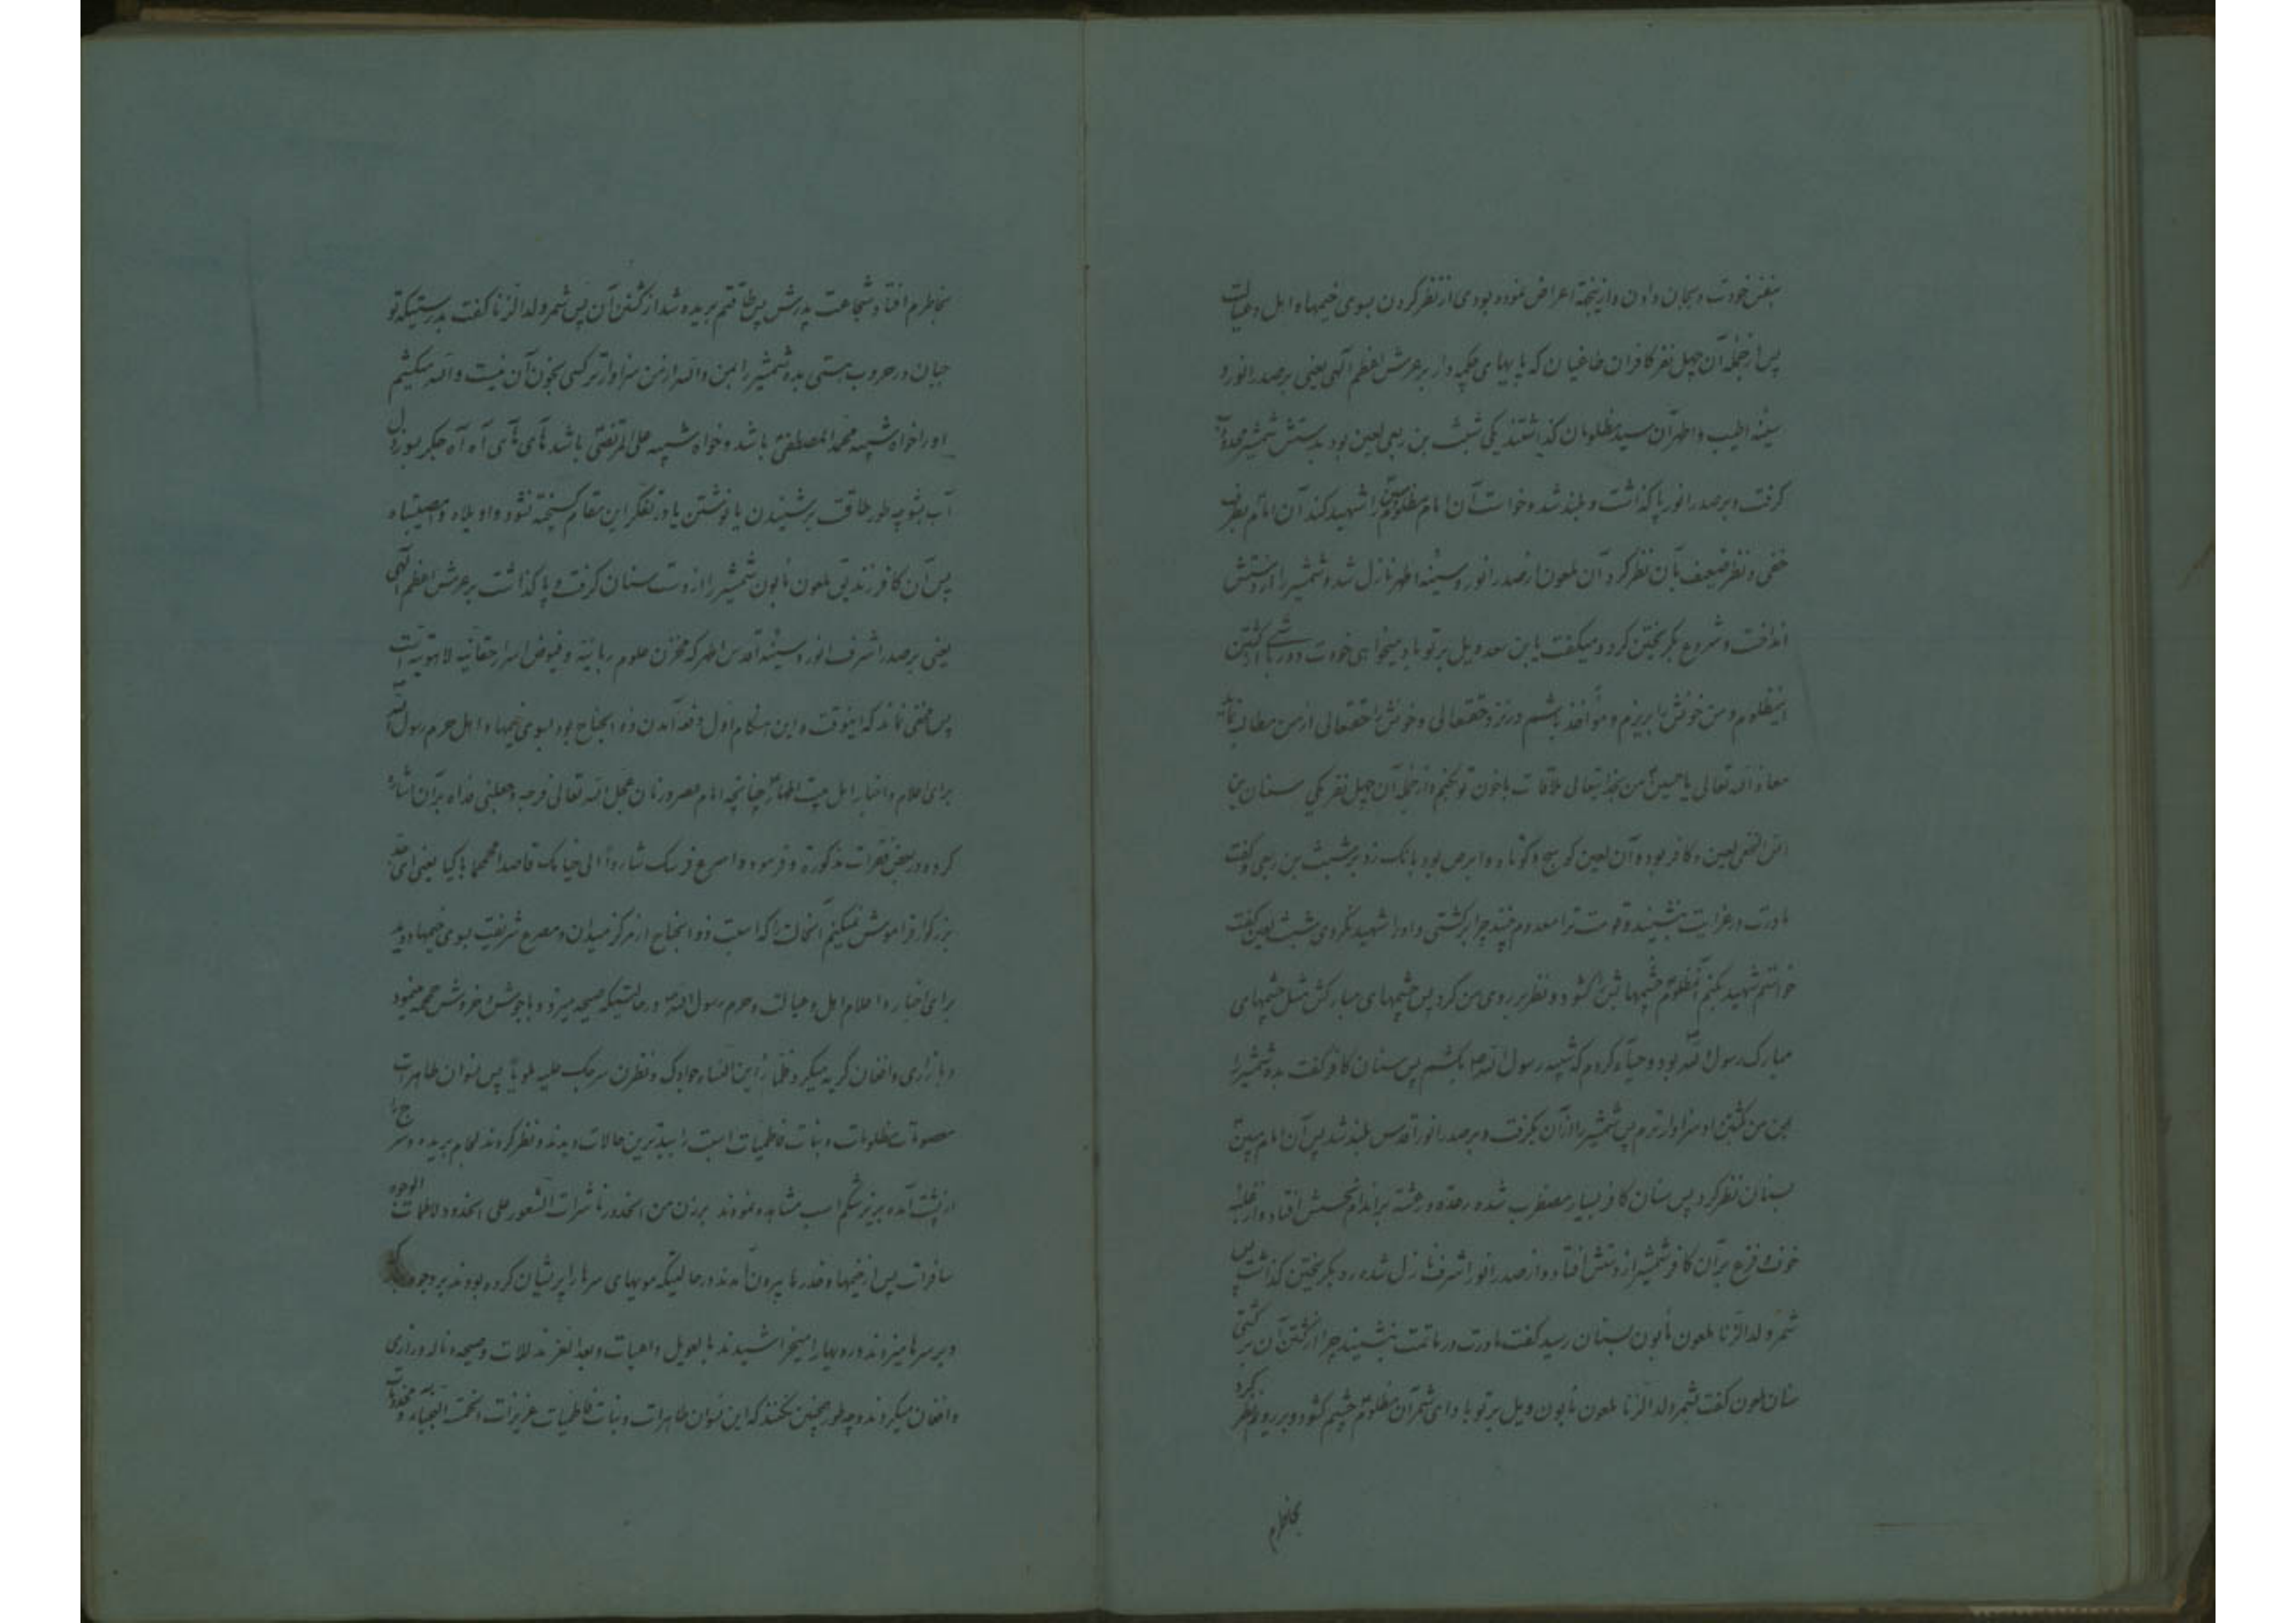 بنفس خودت و بجان دادن و ازینجهة اعراض نموده بودی از نظر کردن بسوی خیمهاه اهل و عیالت
پس از جملهٔ آن چهل نفر کافران طاغیان که پا بپهای چکمه دار بر عرش اعظم آلهی یعنی بر صدر انور و
سینه اطیب و اطهر آن سید مظلومان گذاشتند یکی شبث بن ربعی لعین بود بدستش شمشیر
گرفت و بر صدر انور پا گذاشت و بلند شد و خواست آن امام مظلوم را شهید کند آن امام بطرف
خفی و نظر ضعیف بآن نظر کرد آن ملعون از صدر انور و سینه اطهر نازل شد و شمشیر را از دستش
انداخت و شروع بگریختن کرد و میگفت یا بن سعد ویل بر تو باد میخواهی خودت دور باشی از کشتن
اینمظلوم و من خونش را بریزم و مواخذ باشم در نزد حقتعالی و خونش را حقتعالی از من مطالبه نماید
معاذ الله تعالی یا حسین من بخدایتعالی ملاقات با خون تو نکنم و از جملهٔ آن چهل نفر یکی سنان بن
انس النخعی لعین و کافر بوده و آن لعین کوسج و کوتاه و ابرص بود بانک زد بر شبث بن ربعی و گفت
مادرت در عزایت بنشیند و قومت ترا معدوم چرا برگشتی و او را شهید نکردی شبث لعین گفت
خواستم شهید بکنم آنمظلوم چشمهایش را گشود و نظر بر روی من کرد پس چشمهای مبارکش مثل چشمهای
مبارک رسول الله بود و حیاء کردم که شبیه رسول الله را بکشم پس سنان کافر گفت بده شمشیر را
بمن من بکشتن او سزاوارترم پس شمشیر را از آن بگرفت و بر صدر انور اقدس بلند شد پس آن امام مبین
بسنان نظر کرد پس سنان کافر بسیار مضطرب شده رعده و رعشه بر اندام نحسش افتاد و از غلبه
خوف و فزع بر آن کافر شمشیر از دستش افتاد و از صدر انور اشرف نازل شده رو بگریختن گذاشت پس
شمر ولد الزنا ملعون مأبون بسنان رسید گفت مادرت در ماتمت بنشیند چرا از کشتن آن برگشتی
سنان ملعون گفت بشمر ولد الزنا ملعون مأبون ویل بر تو باد ای شمر آن مظلوم چشم گشود و بر رویم نظر کرد
بخاطرم
بخاطرم افتاد شجاعت پدرش پس طاقتم بریده شد از کشتن آن پس شمر ولد الزنا گفت بدرستیکه تو
جبان در حروب هستی بده شمشیر را بمن والله از من سزاوارتر کسی بخون آن نیست والله میکشیم
او را خواه شبیه محمد المصطفی باشد و خواه شبیه علی المرتضی باشد های های آه آه جگر بسوز دل
آب بشو چه طور طاقت برشنیدن یا نوشتن یا در تفکر این مقام گسیخته نشود واویلاه وامصیبتاه
پس آن کافر زندیق ملعون مأبون شمشیر را از دست سنان گرفت و پا گذاشت بر عرش اعظم آلهی
یعنی بر صدر اشرف انور و سینه اقدس اطهر که مخزن علوم ربانیه و فیوض اسرار حقانیه لاهوتیه است
پس مخفی نماند که اینوقت و این هنگام اول دفعه آمدن ذو الجناح بود بسوی خیمهاه اهل حرم رسول الله
برای اعلام و اخبار اهل بیت اطهار چنانچه امام عصر و زمان عجل الله تعالی فرجه و جعلنی فداه بر آن اشاره
کرده در بعض فقرات مذکوره و فرموده و اسرع فرسک شاردا الی خیامک قاصدا محمحما باکیا یعنی ای جد
بزرگوار فراموش نمیکنم آنحالت را که اسبت ذو الجناح از مرکز میدان و مصرع شریفت بسوی خیمهاه دوید
برای اخبار و اعلام اهل و عیالت و حرم رسول الله در حالتیکه صیحه میزد و با جوش و خروش حمحمه مینمود
و با زاری و افغان گریه میکرد فلما راین النساء جوادک و نظرن سرجک علیه ملویا پس نسوان طاهرات
معصومات مظلومات و بنات فاطمیات اسبت را ببدترین حالات دیدند و نظر کردند لجام بریده و سرج را
از پشت آمده بزیر شکم اسب مشاهده نمودند برزن من الخدور ناشرات الشعور علی الخدود لاطمات الوجوه
سافرات پس از خیمها و خدرها بیرون آمدند در حالتیکه مویهای سرها را پریشان کرده بودند بر وجوه
و بر سرها میزدند و رویها را میخراشیدند با لعویل داعیات و بعد العز مذللات و صیحه و ناله و زاری
و افغان میکردند و چه طور همچنین نکنند که این نسوان طاهرات و بنات فاطمیات عزیزات